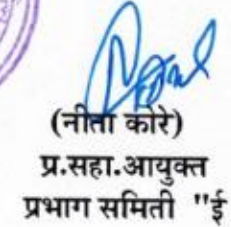 (नीता कोरे)
प्र.सहा.आयुक्त
प्रभाग समिती "ई